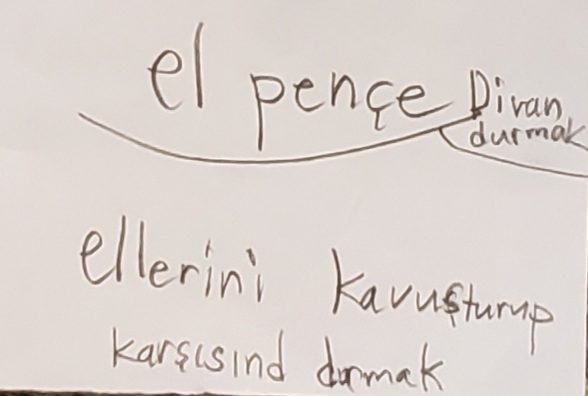 el pençe Divan
durmak
ellerini kavuşturup
karşısınd durmak